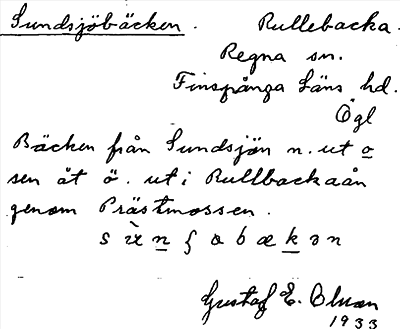 Sundsjöbäcken. Rullebacka.
Regna sn.
Finspånga Läns hd.
Ögl
Bäcken från Sundsjön n. ut o
sen åt ö. ut i Rullbackaån
genom Prästmossen.
Gustaf E.
1933